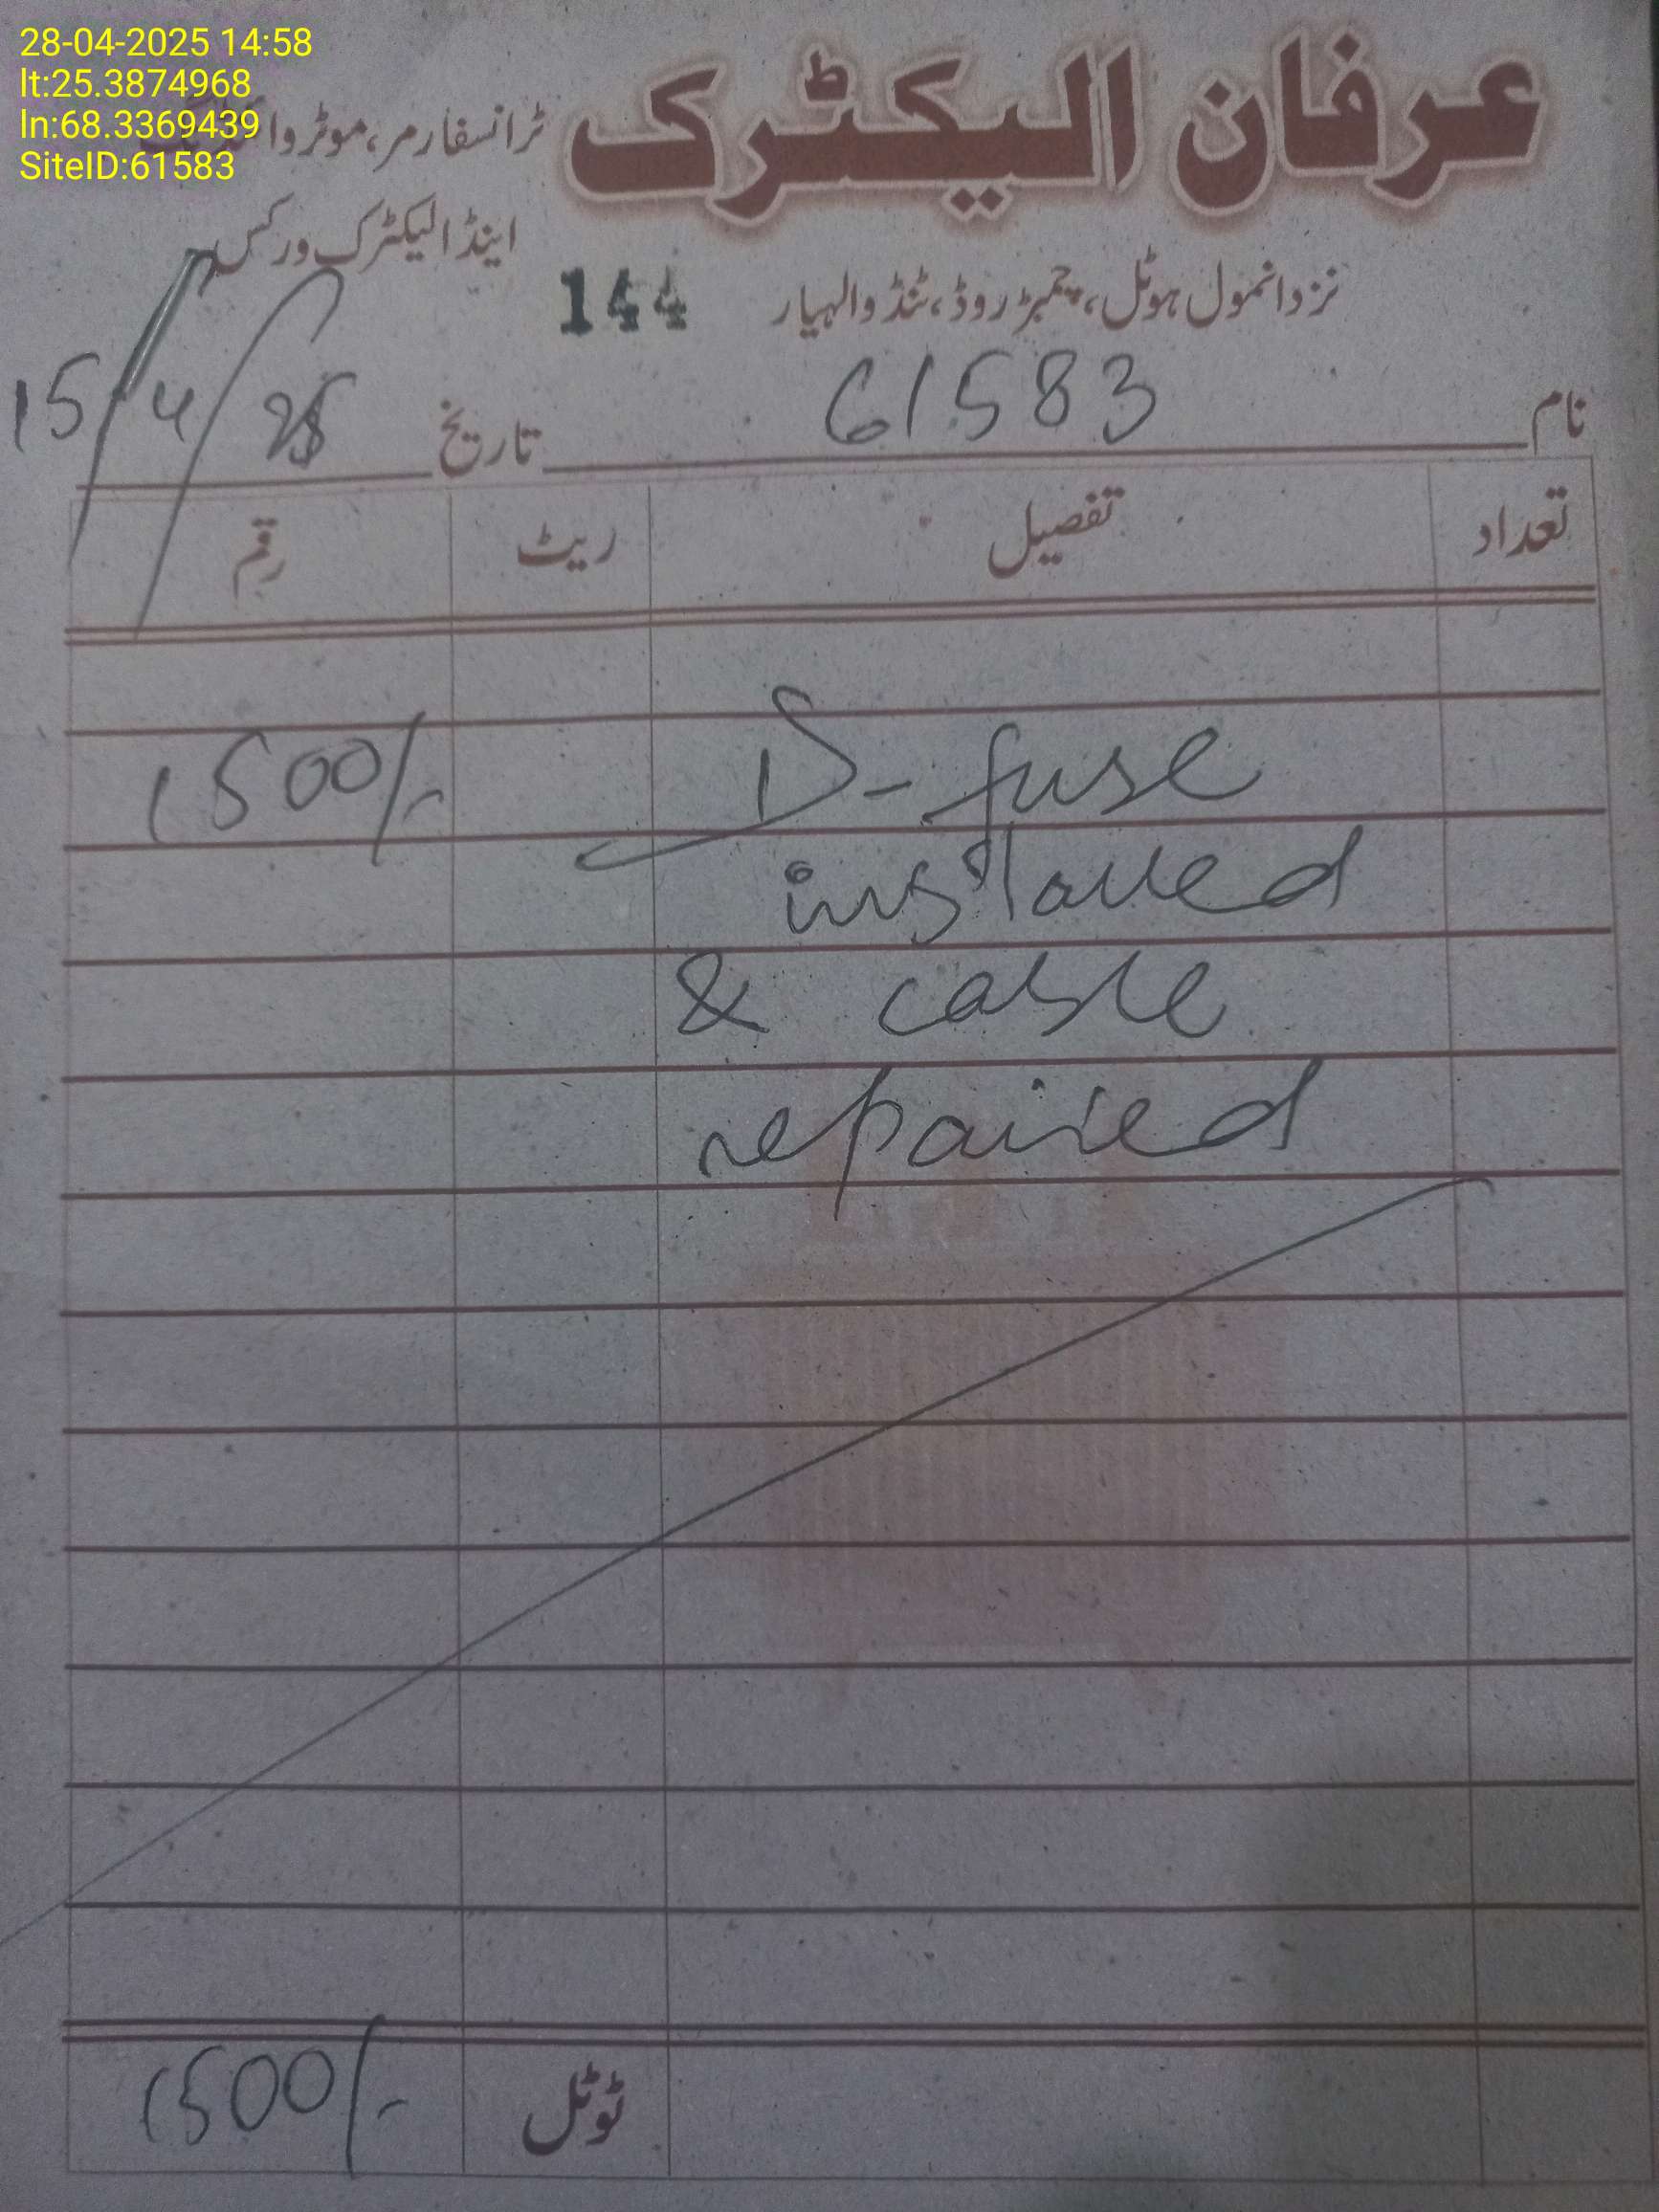 28-04-2025 14:58
lt:25.3874968
ln:68.3369439
SiteID:61583
عرفان الیکٹرک
ٹرانسفارمر، موٹر
اینڈ الیکٹرک ورکس
نزد انمول ہوٹل، چمبڑ روڈ، ٹنڈوالہیار
144
نام 61583 تاریخ 15/4/25
تعداد تفصیل ریٹ رقم
D-fuse 1500/-
installed
& cable
repaired
ٹوٹل 1500/-